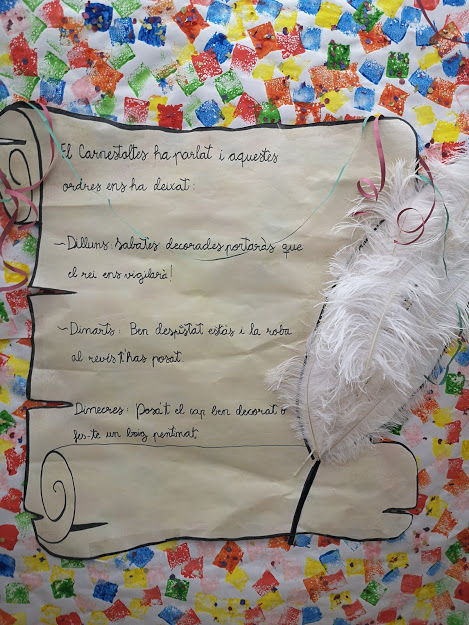 El Carnestoltes ha parlat i aquestes
ordres ens ha deixat:
~Dilluns: Sabates decorades portaràs que
el rei ens vigilarà!
~Dimarts: Ben despistat estàs i la roba
al revés t'has posat.
Dimecres: Posa't el cap ben decorat o
fes-te un boig pentinat